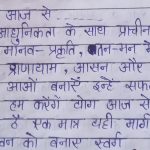 आज से
आधुनिकता के साथ प्राचीन
मानव- प्रकृति, तन-मन
प्राणायाम, आसन और
आओं बनाऐं इन्हें सफल
हम करेंगें योग आज से
है एक मात्र यही मार्ग
को बनाए स्वर्ग